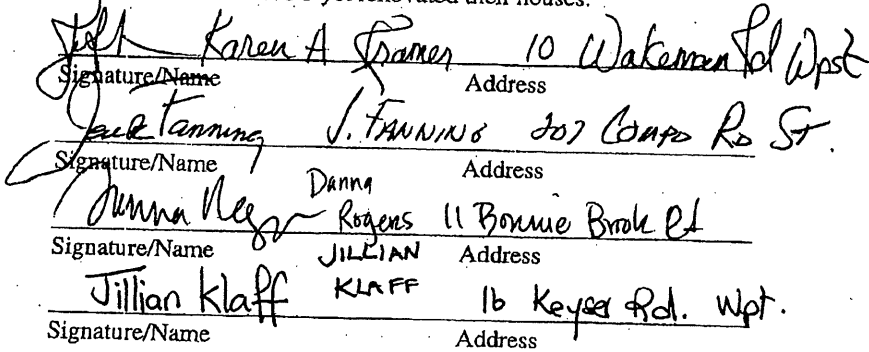 yet renovated their houses.
Karen A Kramer 10 Wakeman Rd Wpst
Signature/Name Address
Jack Fanning J. FANNING 207 COMPO RD ST.
Signature/Name Address
Danna Rogers 11 Bonnie Brook Rd
Signature/Name Address
Jillian Klaff JILLIAN KLAFF 16 Keyser Rd. Wpt.
Signature/Name Address